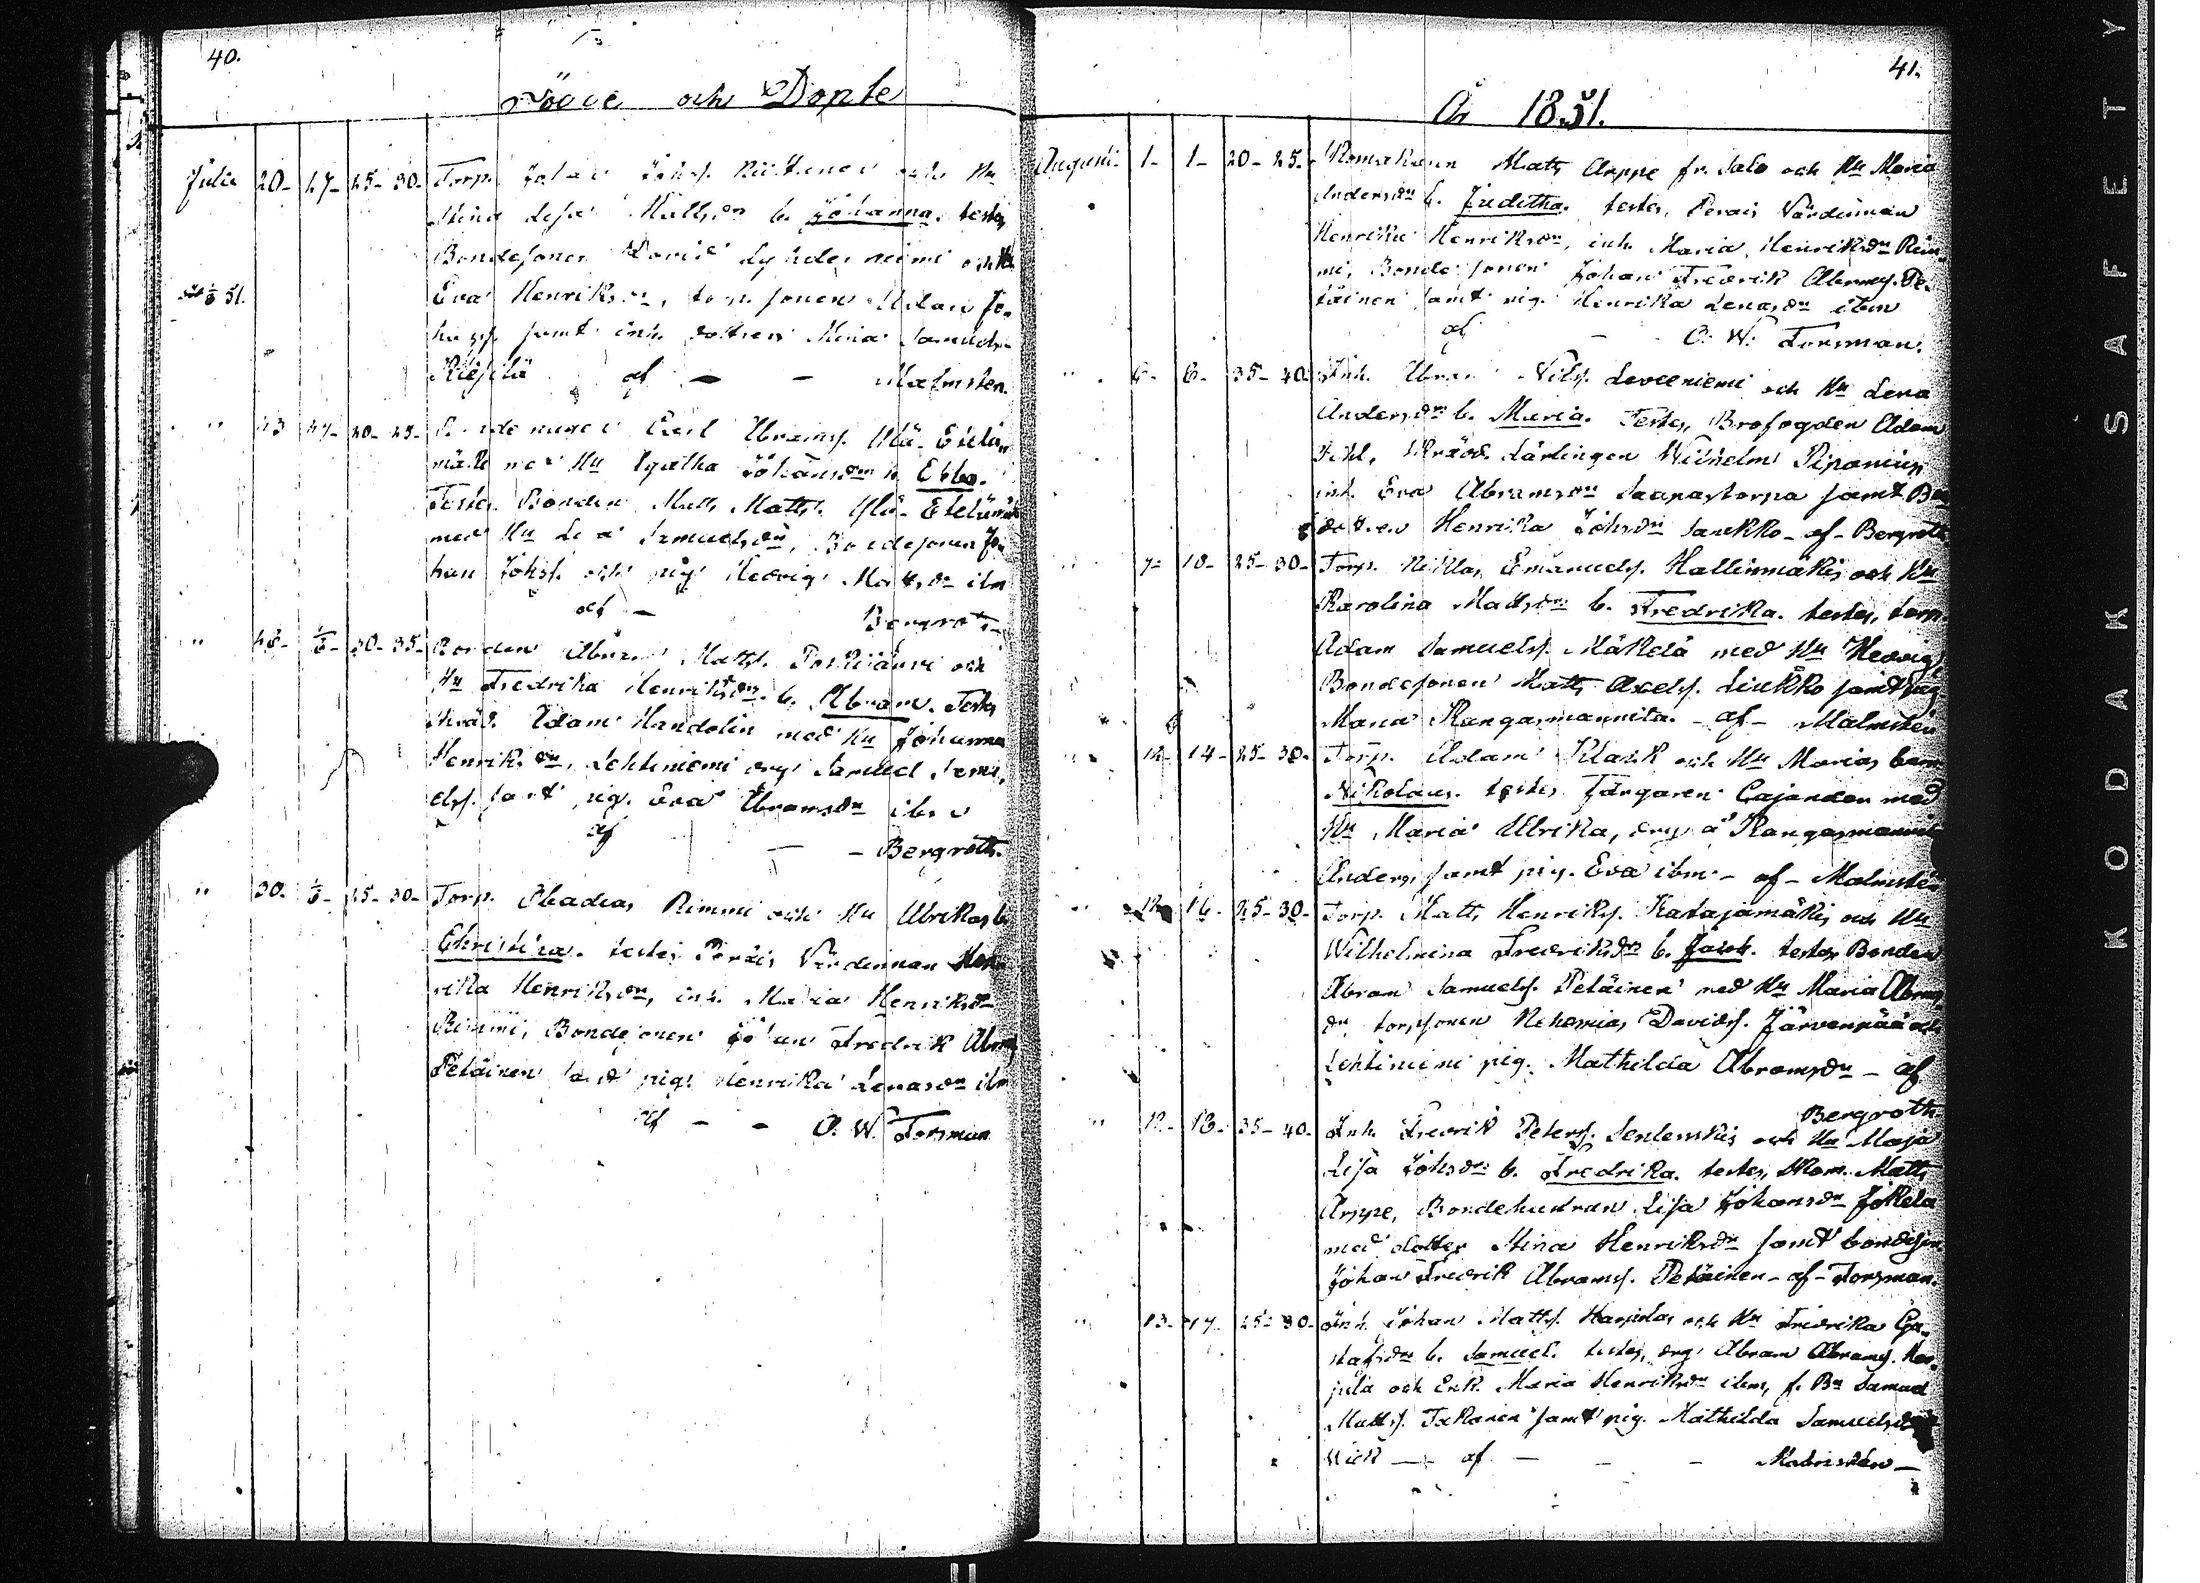 40.
Födde och Döpte
Julii 20- 27- 25-30- Torp. Johan Johss. och Hu
Stina Lisa Mattsdr b. Johanna. testes
Bondesonen David niemi och
Eva Henriksdr, torp. sonen Adam Jo-
hass. samt inh. dottren Stina Samuelsdr
af - - Malmsten.
" 23 27- 20-25- Carl Abramss. Ylä-Etelä-
mäki med Hu Agatha Johansdr b. Ebba.
Testes Bonden Matts Mattss. Ylä-Etelämäki
med Hu Samuelsdr, Bondesonen Jo-
han Johss. och pig. Hedvig Mattsdr ibm
af - Bergroth
" 28- 30-35- Bonden Abram Mattss. och
Hu Fredrika Henriksdr b. Abram. Testes
Adam Mandolin med Hu Johanna
Henriksdr, Lehtiniemi drg. Samuel Samu-
elss. samt pig. Eva Abramsdr ibm
af - - Bergroth.
" 30. 25-30- Torp. Obadias Rimmi och Hu Ulrikas b.
Christina. testes Peräis Värdinnan Hen-
rika Henriksdr, inh. Maria Henriksdr
Rimmi, Bondesonen Johan Fredrik Abrams.
Petäinen samt pig. Henrika Lenasdr ibm
af - - O. W. Forsman
41.
År 1851.
Augusti. 1- 1- 20-25- Matts Arppe fr. Salo och Hu Maria
Andersdr b. Juditha. testes, Peräis Värdinnan
Henrika Henriksdr, inh. Maria Henriksdr Rim-
mi, Bondesonen Johan Fredrik Abramss. Pe-
täinen samt pig. Henrika Lenasdr ibm
af - O. W. Forsman.
" 6- 35-40- Inh. Abram Nilss. Leveeniemi och Hu Lena
Andersdr b. Maria. Testes, Brofogden Adam
Skräd. lärlingen Wilhelm
inh. Eva Abramsdr Saapastorpa samt
dottren Henrika Johsdr Sarkko - af - Bergroth
" 7- 10- 25-30- Torp. Niklas Emanuelss. Hallinmäkis och Hu
Karolina Mattsdr b. Fredrika. testes, torp.
Adam Samuelss. Mäkelä med Hu Hedvig,
Bondesonen Matts Axelss. Liukko samt pig.
Maria Kangasmannila. - af - Malmsten
" 12- 14- 25-30- Torp. Adam Klask och Hu Marias barn
Nikolaus. testes Färgaren Cajander med
Hu Maria Ulrika, drg. å Kangasmannila
Anders, samt pig. Eva ibm - af - Malmsten
" 12 16- 25-30- Torp. Matts Henrikss. Katajamäkis och Hu
Wilhelmina Fredriksdr b. Jacob. testes Bonden
Abram Samuelss. Petäinen med Hu Maria Abrams-
dr torpsonen Nehemias Davidss. Järvenpää och
Lehtiniemi pig. Mathilda Abramsdr - af
Bergroth
" 12- 13- 35-40- Inh. Fredrik Peterss. och Hu Maja
Lisa Johsdr b. Fredrika. testes, Skom. Matts
Arppe, Bondehustrun Lisa Johansdr Jokela
med dotter Stina Henriksdr samt bondeson
Johan Fredrik Abramss. Petäinen - af - Forsman.
" 13- 17- 25-30- Inh. Johan Mattss. Harjulas och Hu Fredrika Gu-
stafsdr b. Samuel. testes, drg. Abram Abramss. Har-
jula och Enk. Maria Henriksdr ibm, f. Bn Samuel
Mattss. Takanen samt pig. Mathilda Samuelsdr
Wick - af - - - Malmsten -
KODAK SAFETY